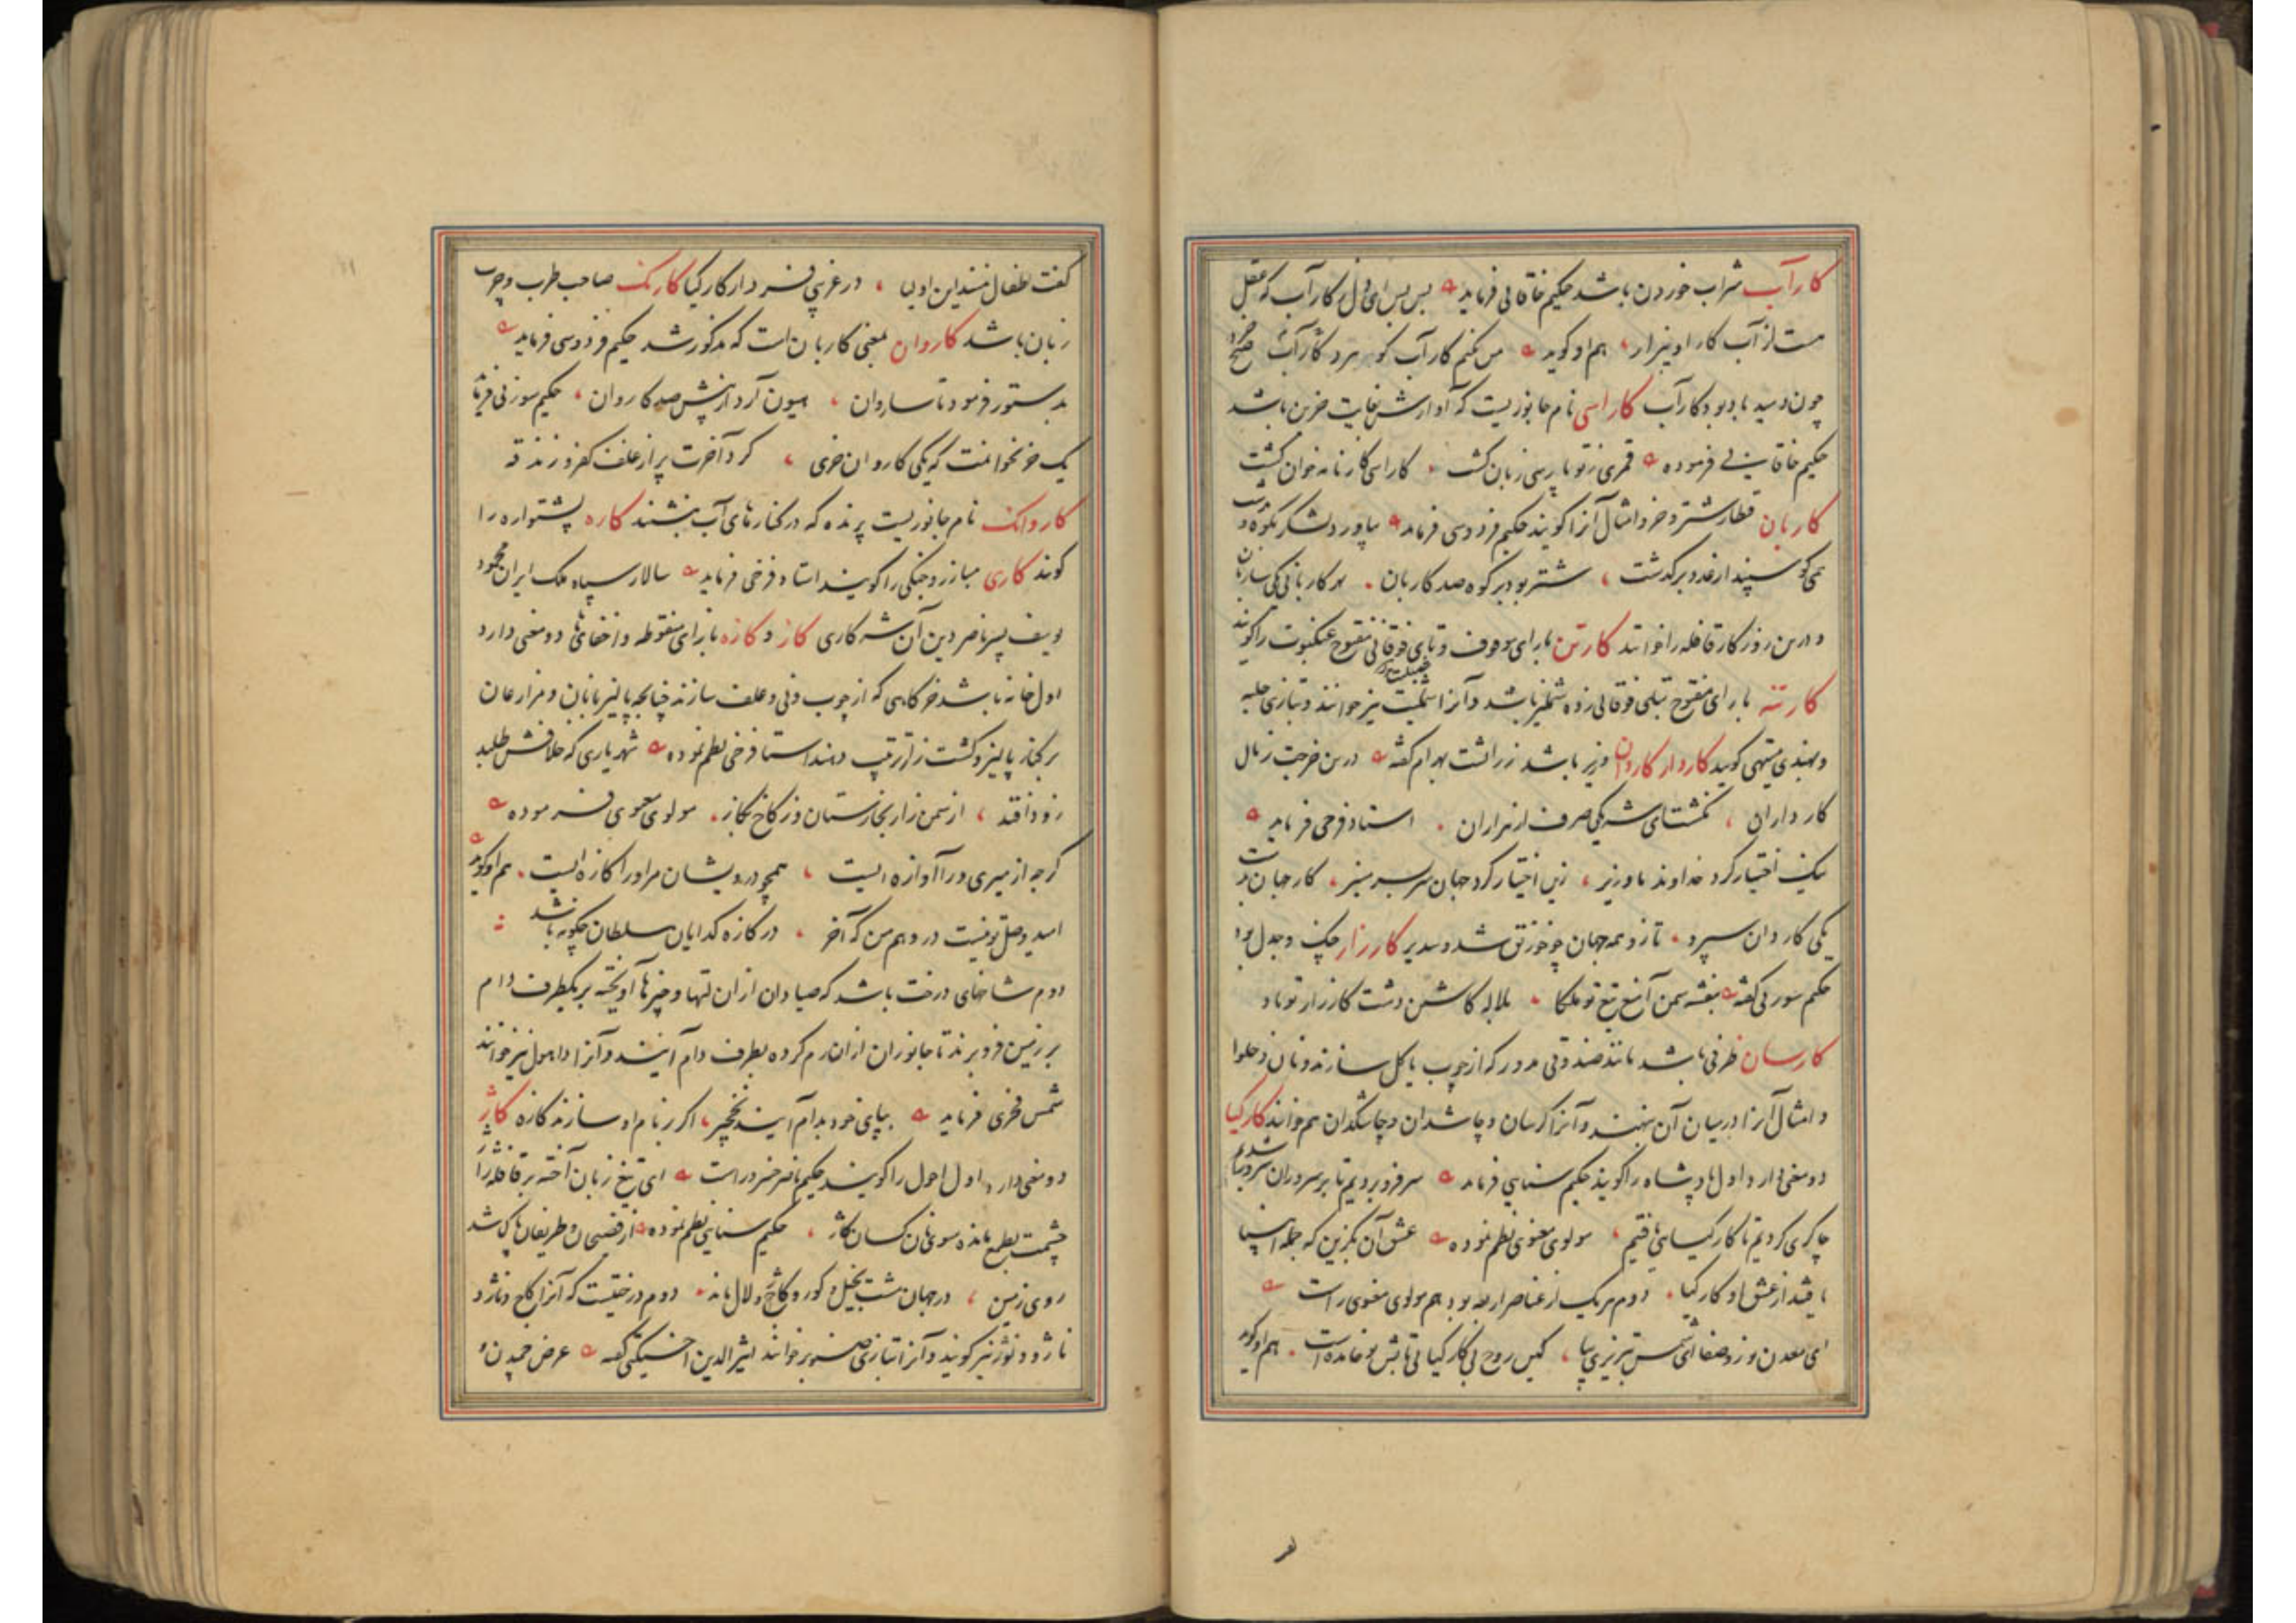 کارآب شراب خوردن باشد حکیم خاقانی فرماید بس بس ای دل کارآب که عقل
هست از آب کار او بیزار هم او گوید من نکنم کارآب کو ببرد کارآب صبح
چون دمید باد بود کارآب کاراسی نام جانوریست که آوازش بغایت حزین باشد
حکیم خاقانی فرموده قمری ز تو پارسی زبان گشت کاراسی کارنامه خوان گشت
کاربان قطار شتر و خر و امثال آنرا گویند حکیم فردوسی فرماید بیاورد لشکر بکوه و دشت
همی گوسپند از عدد برگذشت شتر بود بر کوه صد کاربان بهر کاربانی یکی ساربان
و درین روزگار قافله را خوانند کارتن با رای موقوف و تای فوقانی مفتوح عنکبوت را گویند
کارتنه با رای مفتوح بتای فوقانی زده شملیز باشد و آنرا شملیت نیز خوانند و بتازی حلبه
و بهندی میتهی گویند کاردار کاردان وزیر باشد زراتشت بهرام گفته درین خرجت ز مال
کارداران نگشتای شه یکی صرف از هزاران استاد فرخی فرماید
نیک اختیار کرد خداوند ما وزیر زین اختیار کرد جهان سر بسر منیر کار جهان بدست
یکی کاردان سپرد تا زو همه جهان چو خورنق شد و سدیر کارزار جنگ و جدل بود
حکیم سوزنی گفته بنفشه سمن آمیغ تیغ تو ملکا بلاله کاشتن دشت کارزار تو باد
کارسان ظرفی باشد مانند صندوقی مدور که از چوب یا گل سازند و نان و حلوا
و امثال آنرا در میان آن نهند و آنرا کرسان و چاشدان و چاشکدان هم خوانند کارکیا
دو معنی دارد اول پادشاه را گویند حکیم سنایی فرماید سر فرو بردیم تا بر سروران سرور شدیم
چاکری کردیم تا کارکیایی یافتیم مولوی معنوی نظم نموده عشق آن بگزین که جمله انبیا
یافتند از عشق او کارکیا دوم هر یک از عناصر اربعه بود هم مولوی معنوی راست
ای معدن نور و صفا ای شمس تبریزی بیا کین روح بی کارکیا بی تابش تو جامد است هم او گوید
گفت اطفال منند این اولیا در غریبی فرد از کار و کیا کارنگ صاحب طرب و چرب
زبان باشد کاروان بمعنی کاربان است که مذکور شد حکیم فردوسی فرماید
بدستور فرمود تا ساروان هیون آرد از پیش صد کاروان حکیم سوزنی فرماید
یک خر نخوانمت که یکی کاروان خری گرد آخرت پر از علف
کاروانک نام جانوریست پرنده که در کنارهای آب نشیند کاره پشتواره را
گویند کاری مبارز و جنگی را گویند استاد فرخی فرماید سالار سپاه ملک ایران محمود
یوسف پسر ناصر دین آن شه کاری کاز و کازه با زای منقوطه و اخفای ها دو معنی دارد
اول خانه باشد خرگاهی که از چوب و نی و علف سازند چنانچه پالیزبانان و مزارعان
بر کنار پالیز و کشت زار ترتیب دهند استاد فرخی نظم نموده شهریاری که خلافش طلبد
زود افتد از سمن زار بخارستان وز کاخ بکاز مولوی معنوی فرموده
گرچه از میری ورا آوازه ایست همچو درویشان مر او را کازه ایست هم او گوید
امید وصل تو نیست در وهم من که آخر در کازه گدایان سلطان چگونه باشد
دوم شاخهای درخت باشد که صیادان از آن لتها و چیزها آویخته بر یکطرف دام
بر زمین فرو برند تا جانوران از ان رم کرده بطرف دام آیند و آنرا داهول نیز خوانند
شمس فخری فرماید بپای خود بدام آیند نخچیر اگر بر نام او سازند کازه کاژ
دو معنی دارد اول احول را گویند حکیم ناصر خسرو راست ای تیغ زبان آخته بر قافله ژاژ
چشمت بطمع مانده سوی نان کسان کاژ حکیم سنایی نظم نموده از فصیحان و ظریفان پاک شد
روی زمین در جهان مشتی بخیل و کور و کاژ و لال ماند دوم درختیست که آنرا کاج و ناژو
ناژ و نوژ نیز گویند و آنرا بتازی صنوبر خوانند اثیرالدین اخسیکتی گفته عرض